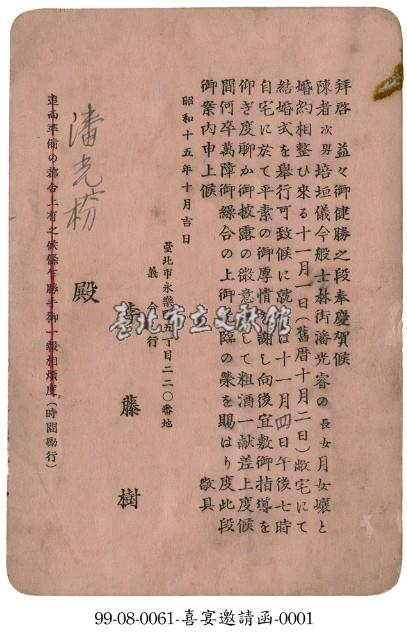 拜啓 益々御健勝之段奉慶賀候
陳者次男培垣儀今般士林街潘光睿の長女月女孃と
婚約相整ひ來る十一月一日(舊曆十月二日)敝宅にて
結婚式を擧行可致候に就
は十一月四日午後七時
自宅に於て平素の御厚情
謝し向後宜敷御指導を
仰ぎ度聊か御披露の微意
して粗酒一献差上度候
間何卒萬障御繰合の上御
臨の榮を賜はり度此段
御案內申上候 敬具
昭和十五年十月吉日
臺北市永樂
丁目二二〇番地
義
行
藤樹
潘光枌 殿
追而準備の都合上有之候儘乍勝手御一報相煩度(時間勵行)
臺北市立文獻館
99-08-0061-喜宴邀請函-0001